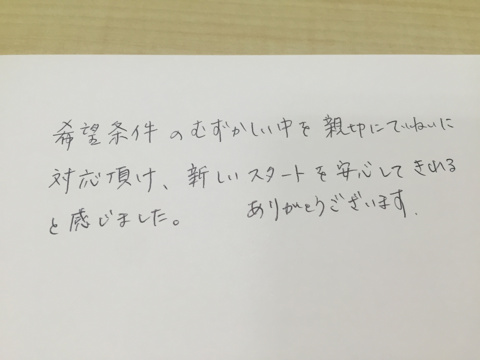 希望条件のむずかしい中を親切にていねいに
対応頂け、新しいスタートを安心してきれる
と感じました。 ありがとうございます.